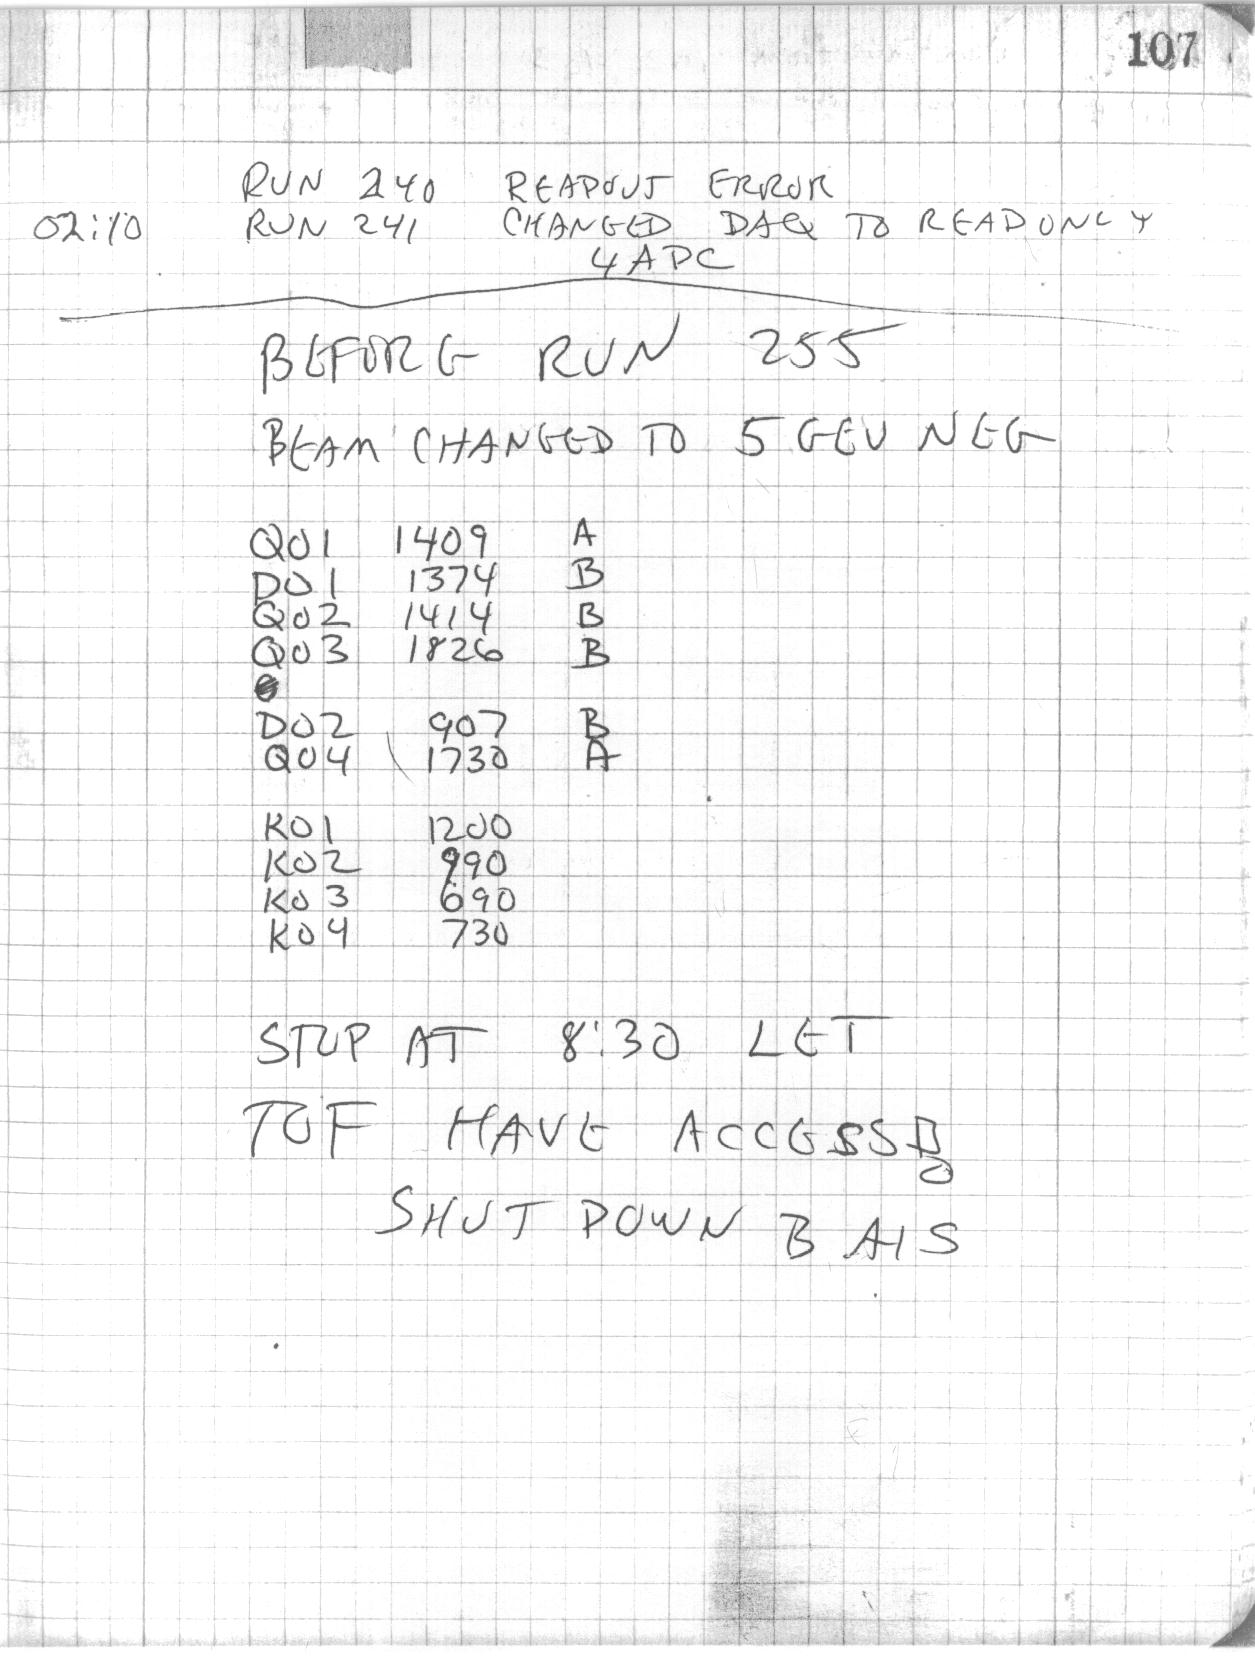 107
RUN 240 READOUT ERROR
02:10 RUN 241 CHANGED DAQ TO READ ONLY
4 ADC
BEFORE RUN 255
BEAM CHANGED TO 5 GEV NEG
Q01 1409 A
D01 1374 B
Q02 1414 B
Q03 1826 B
D02 907 B
Q04 1730 A
K01 1200
K02 990
K03 690
K04 730
STOP AT 8:30 LET
TOF HAVE ACCESS
SHUT DOWN B AIS